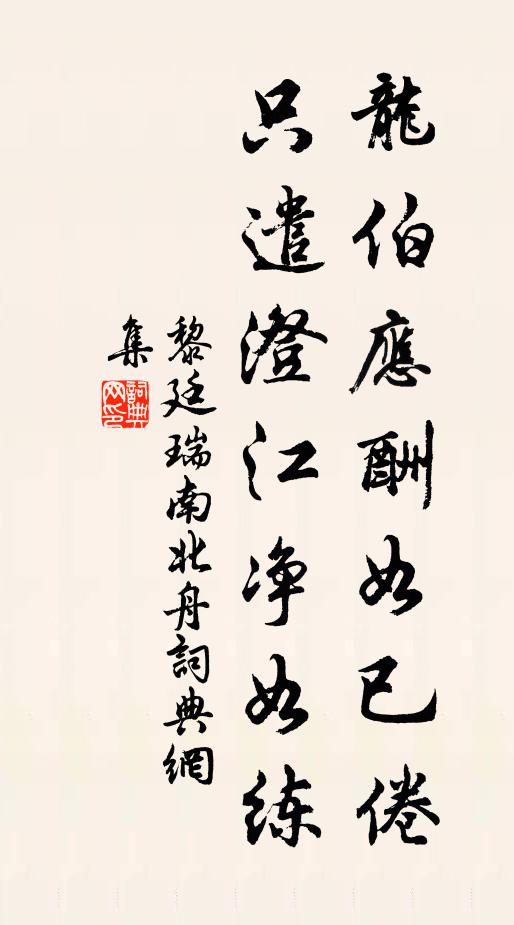 龍伯應酬如已倦
只遣澄江净如練
黎廷瑞南北舟詞典網
集
詞典網印